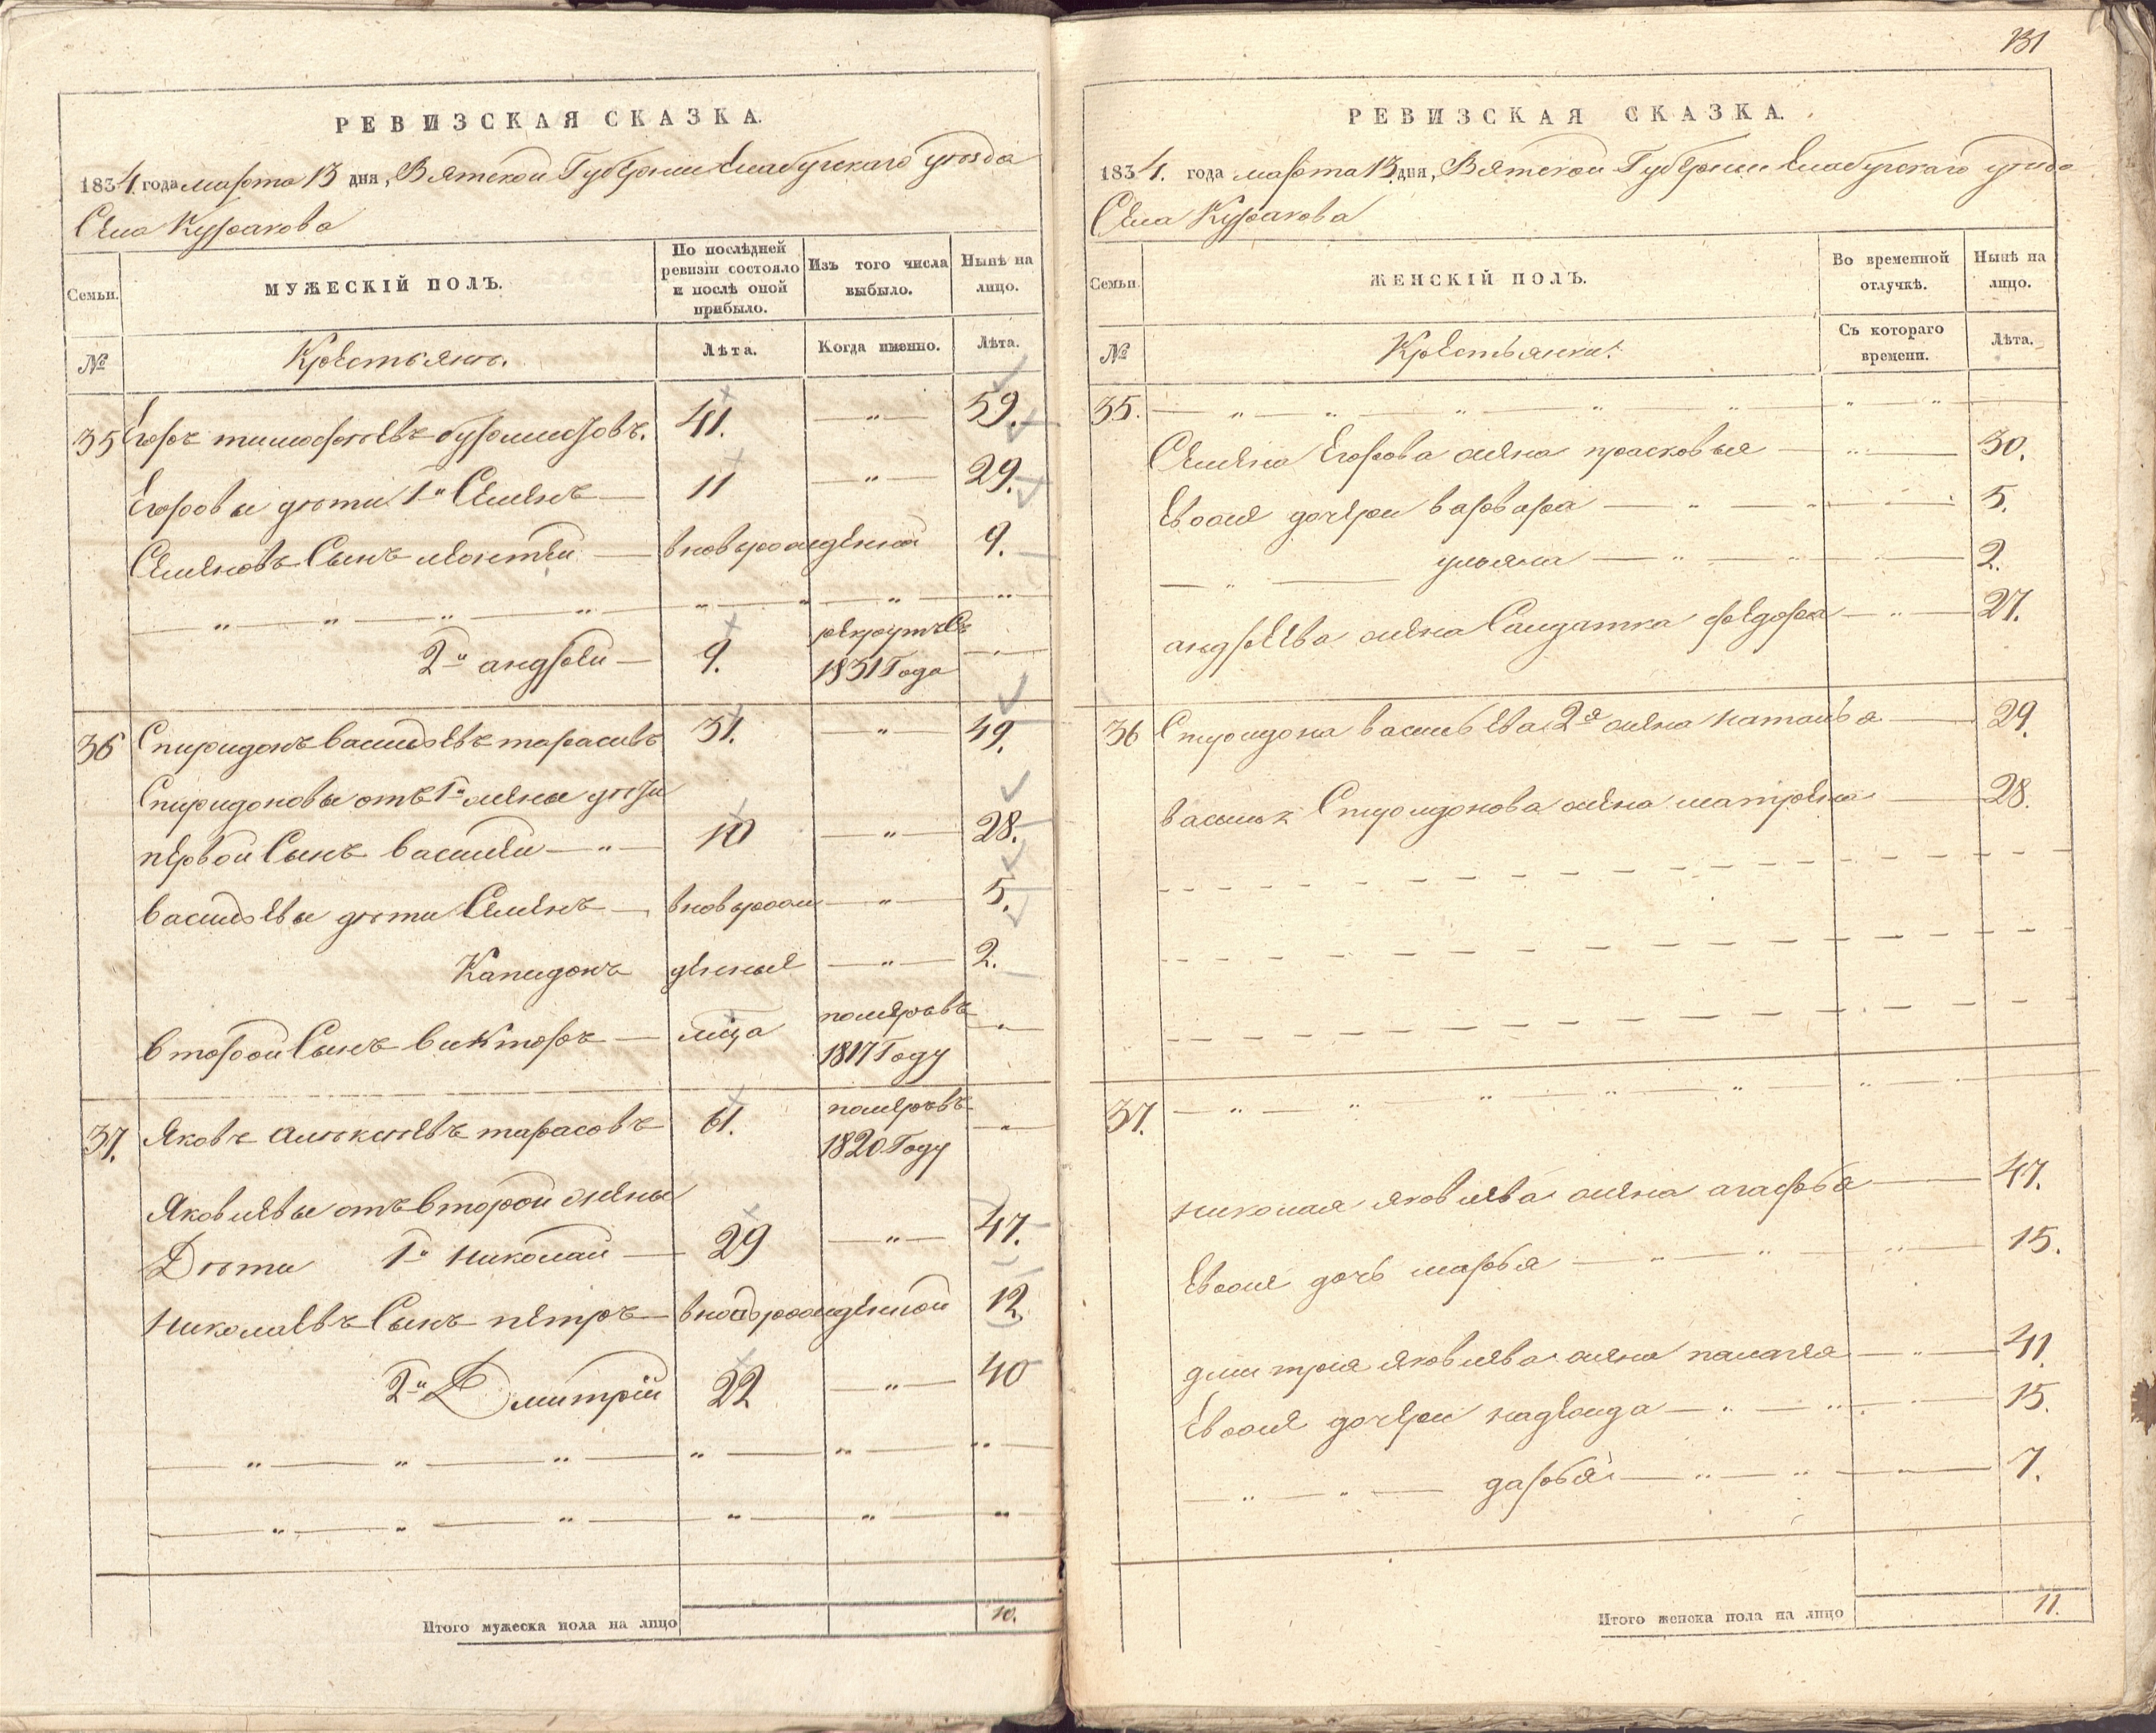 РЕВИЗСКАЯ СКАЗКА.
1834. года марта 13 дня, Вятской Губернии Елабугскаго уѣзда
Села Куракова
Семьи.
МУЖЕСКІЙ ПОЛЪ.
По послѣдней ревизіи состояло и послѣ оной прибыло.
Изъ того числа выбыло.
Нынѣ на лицо.
№
Крестьянъ.
Лѣта.
Когда именно.
Лѣта.
35 Егоръ тимофѣевъ 41. — „ — 59.
Егоровы дѣти 1й Семенъ — 11 — „ — 29.
Семеновъ Сынъ леонтеи — вновьрожденной 9.
— „ — „ — „ — „ — „ — „ — „ — „
2й андреи — 9. рекрутъ Съ 1831 Года — „ —
36 Спиридонъ васильевъ тарасовъ 31. — „ — 49.
Спиридоновы отъ 1й жены дѣти
первой Сынъ василеи — „ — 10 — „ — 28.
васильевы дѣти Семенъ — вновьрож — „ — 5.
Капидонъ денныя — „ — 2.
второй Сынъ викторъ — померъ въ 1817 Году — „ —
37. Яковъ алѣксѣевъ тарасовъ 61. померъ въ 1820 Году — „ —
Яковлевы отъ второй жены
Дѣти 1й николай — 29 — „ — 47.
николаевъ Сынъ петръ — вновьрожденной 12.
2й Дмитрій 22 — „ — 40
— „ — „ — „ — „ — „ — „
— „ — „ — „ — „ — „ — „
Итого мужеска пола на лицо 10.
131
РЕВИЗСКАЯ СКАЗКА.
1834. года марта 13 дня, Вятской Губернии Елабугскаго уѣзда
Села Куракова
Семьи.
ЖЕНСКІЙ ПОЛЪ.
Во временной отлучкѣ.
Нынѣ на лицо.
№
Крестьянки.
Съ котораго времени.
Лѣта.
35. — „ — „ — „ — „ — „ — „ — „
Семена Егорова жена прасковья — „ — 30.
Евоже дочери варвара — „ — „ — 5.
— „ — ульяна — „ — „ — 2.
андреева жена Салдатка федора — „ — 27.
36 Спиридона васильева 2я жена наталья — 29.
василья Спиридонова жена матрена — 28.
— — — — — — — — — —
— — — — — — — — — —
— — — — — — — — — —
37. — „ — „ — „ — „ — „ — „
николая яковлева жена агафья — 47.
Евоже дочь марья — „ — „ — „ — 15.
дмитрія яковлева жена палагея — „ — 41.
Евоже дочери надежда — „ — „ — 15.
— „ — „ — дарья — „ — „ — „ — 7.
Итого женска пола на лицо 11.